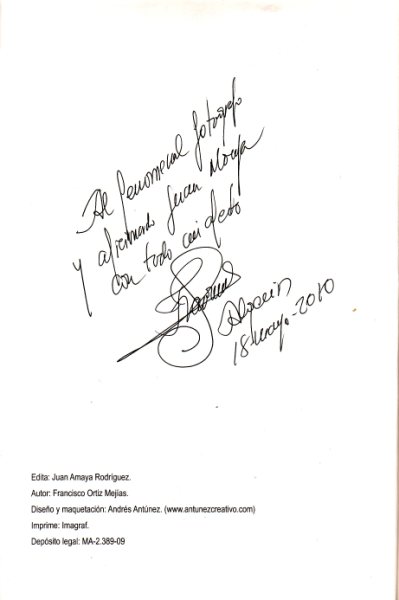 Al fenomenal fotógrafo
y aficionado Juan Moya
con todo mi afecto
18-mayo-2010
Edita: Juan Amaya Rodríguez.
Autor: Francisco Ortiz Mejías.
Diseño y maquetación: Andrés Antúnez. (www.antunezcreativo.com)
Imprime: Imagraf.
Depósito legal: MA-2.389-09